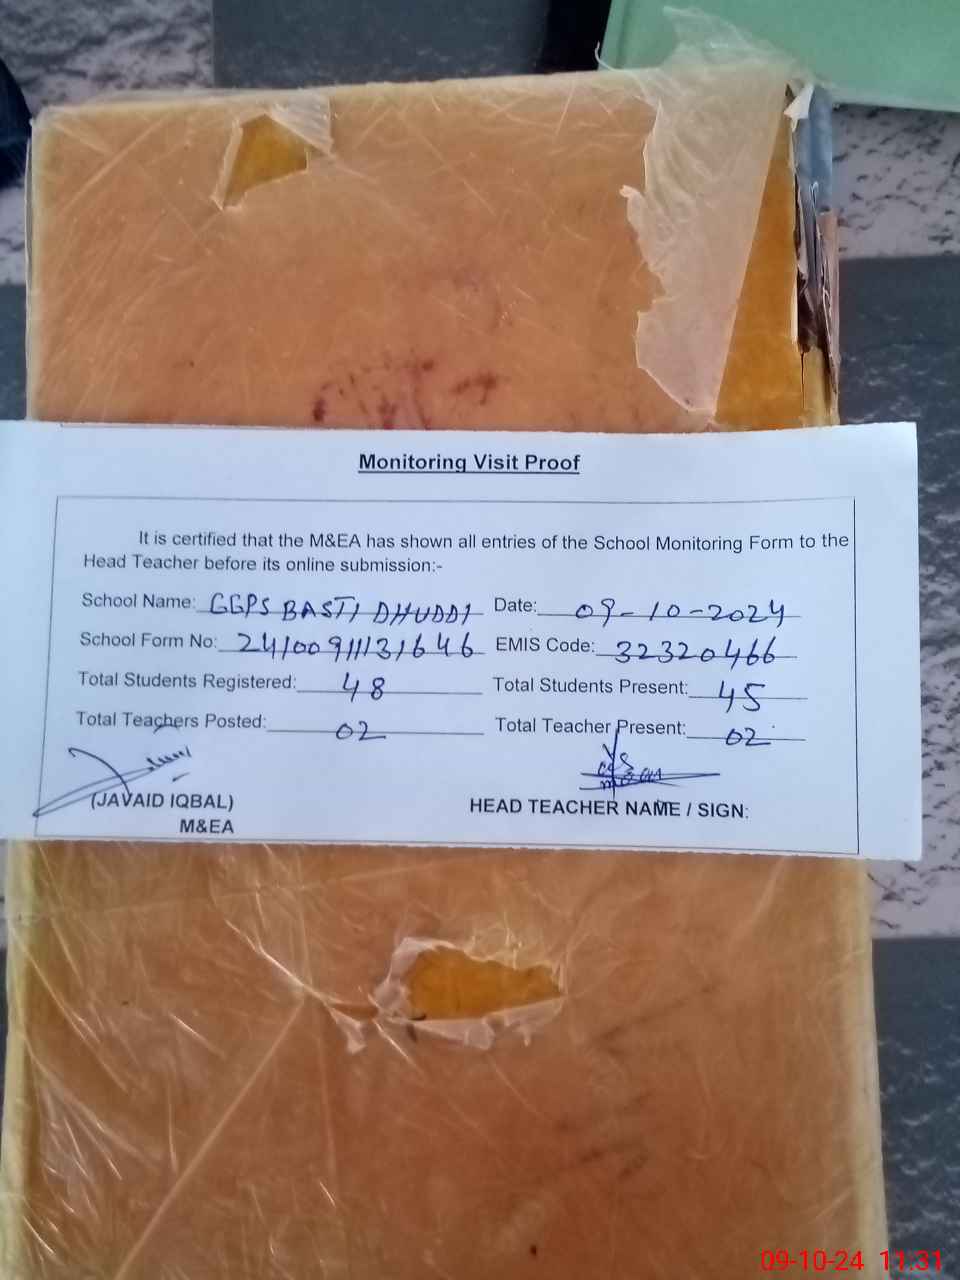 Monitoring Visit Proof
It is certified that the M&EA has shown all entries of the School Monitoring Form to the
Head Teacher before its online submission:-
School Name: GGPS BASTI DHUDDI Date: 09-10-2024
School Form No: 2410091131646 EMIS Code: 32320466
Total Students Registered: 48 Total Students Present: 45
Total Teachers Posted: 02 Total Teacher Present: 02
(JAVAID IQBAL) HEAD TEACHER NAME / SIGN:
M&EA
09-10-24 11:31